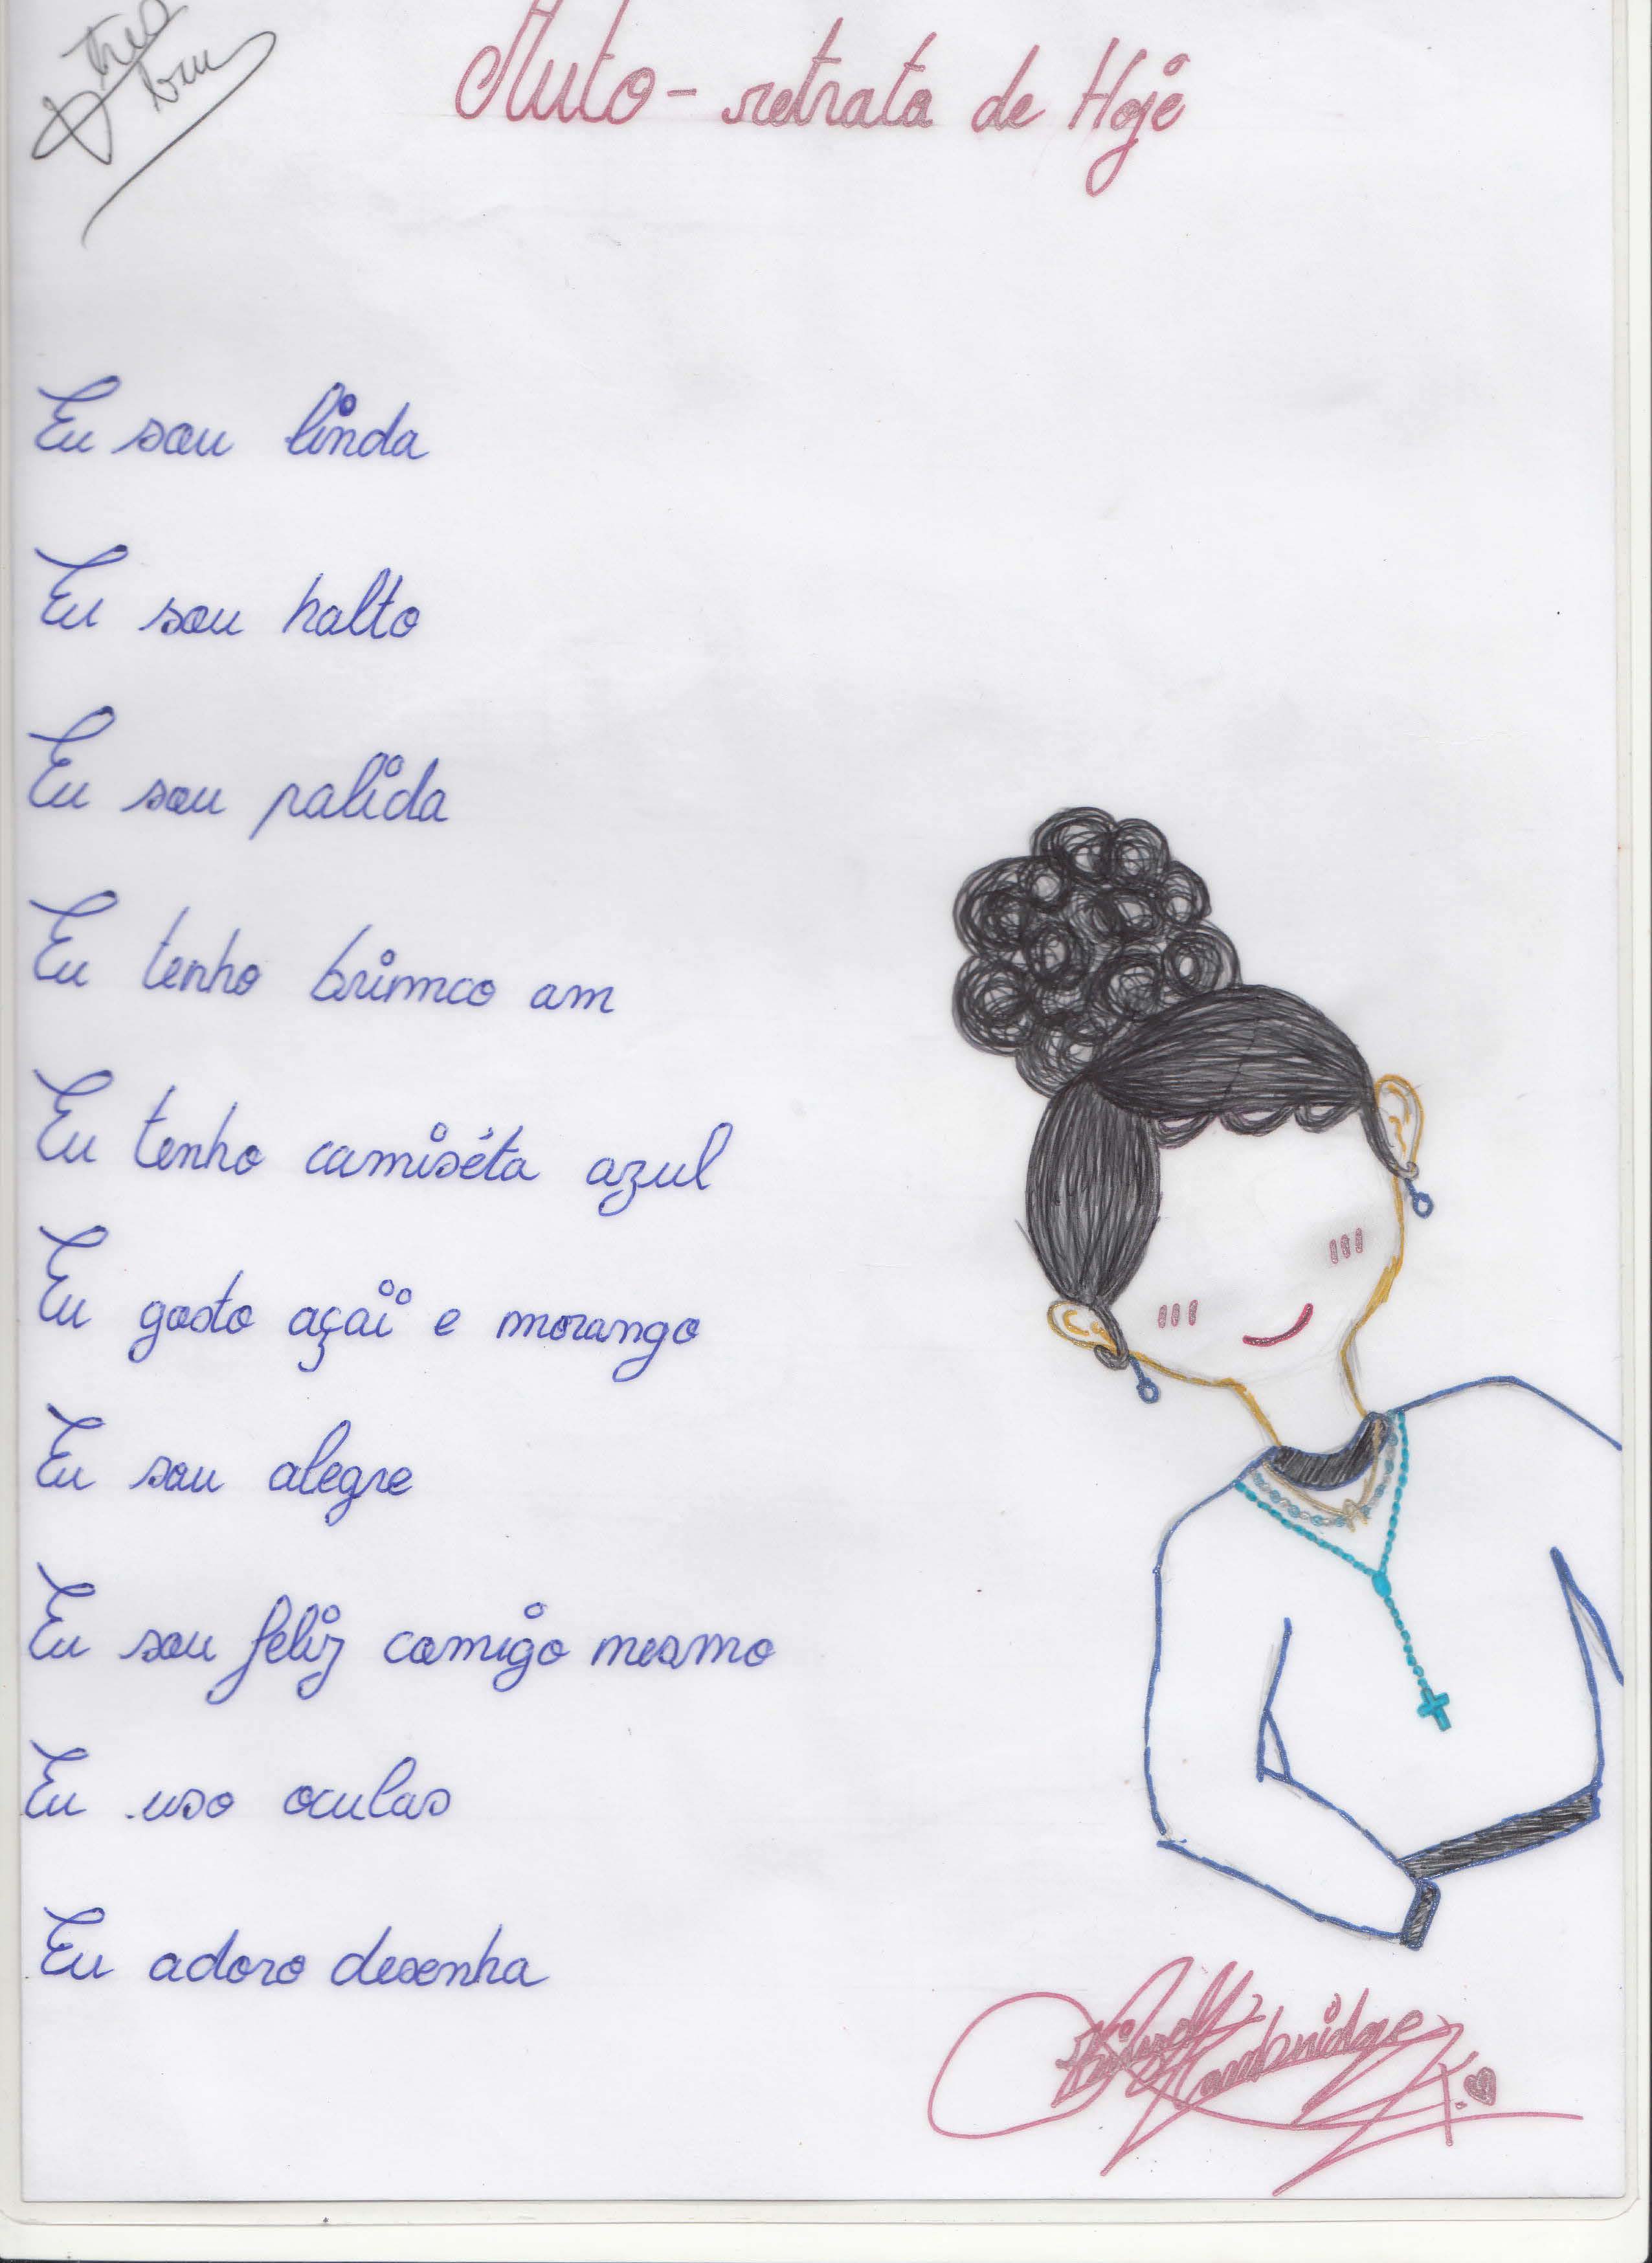 Auto-retrata de Hoje
Eu sou linda
Eu sou halto
Eu sou palida
Eu tenho brimco am
Eu tenho camiséta azul
Eu gosto açaii e morango
Eu sou alegre
Eu sou feliz comigo mesmo
Eu uso oculas
Eu adoro desenha